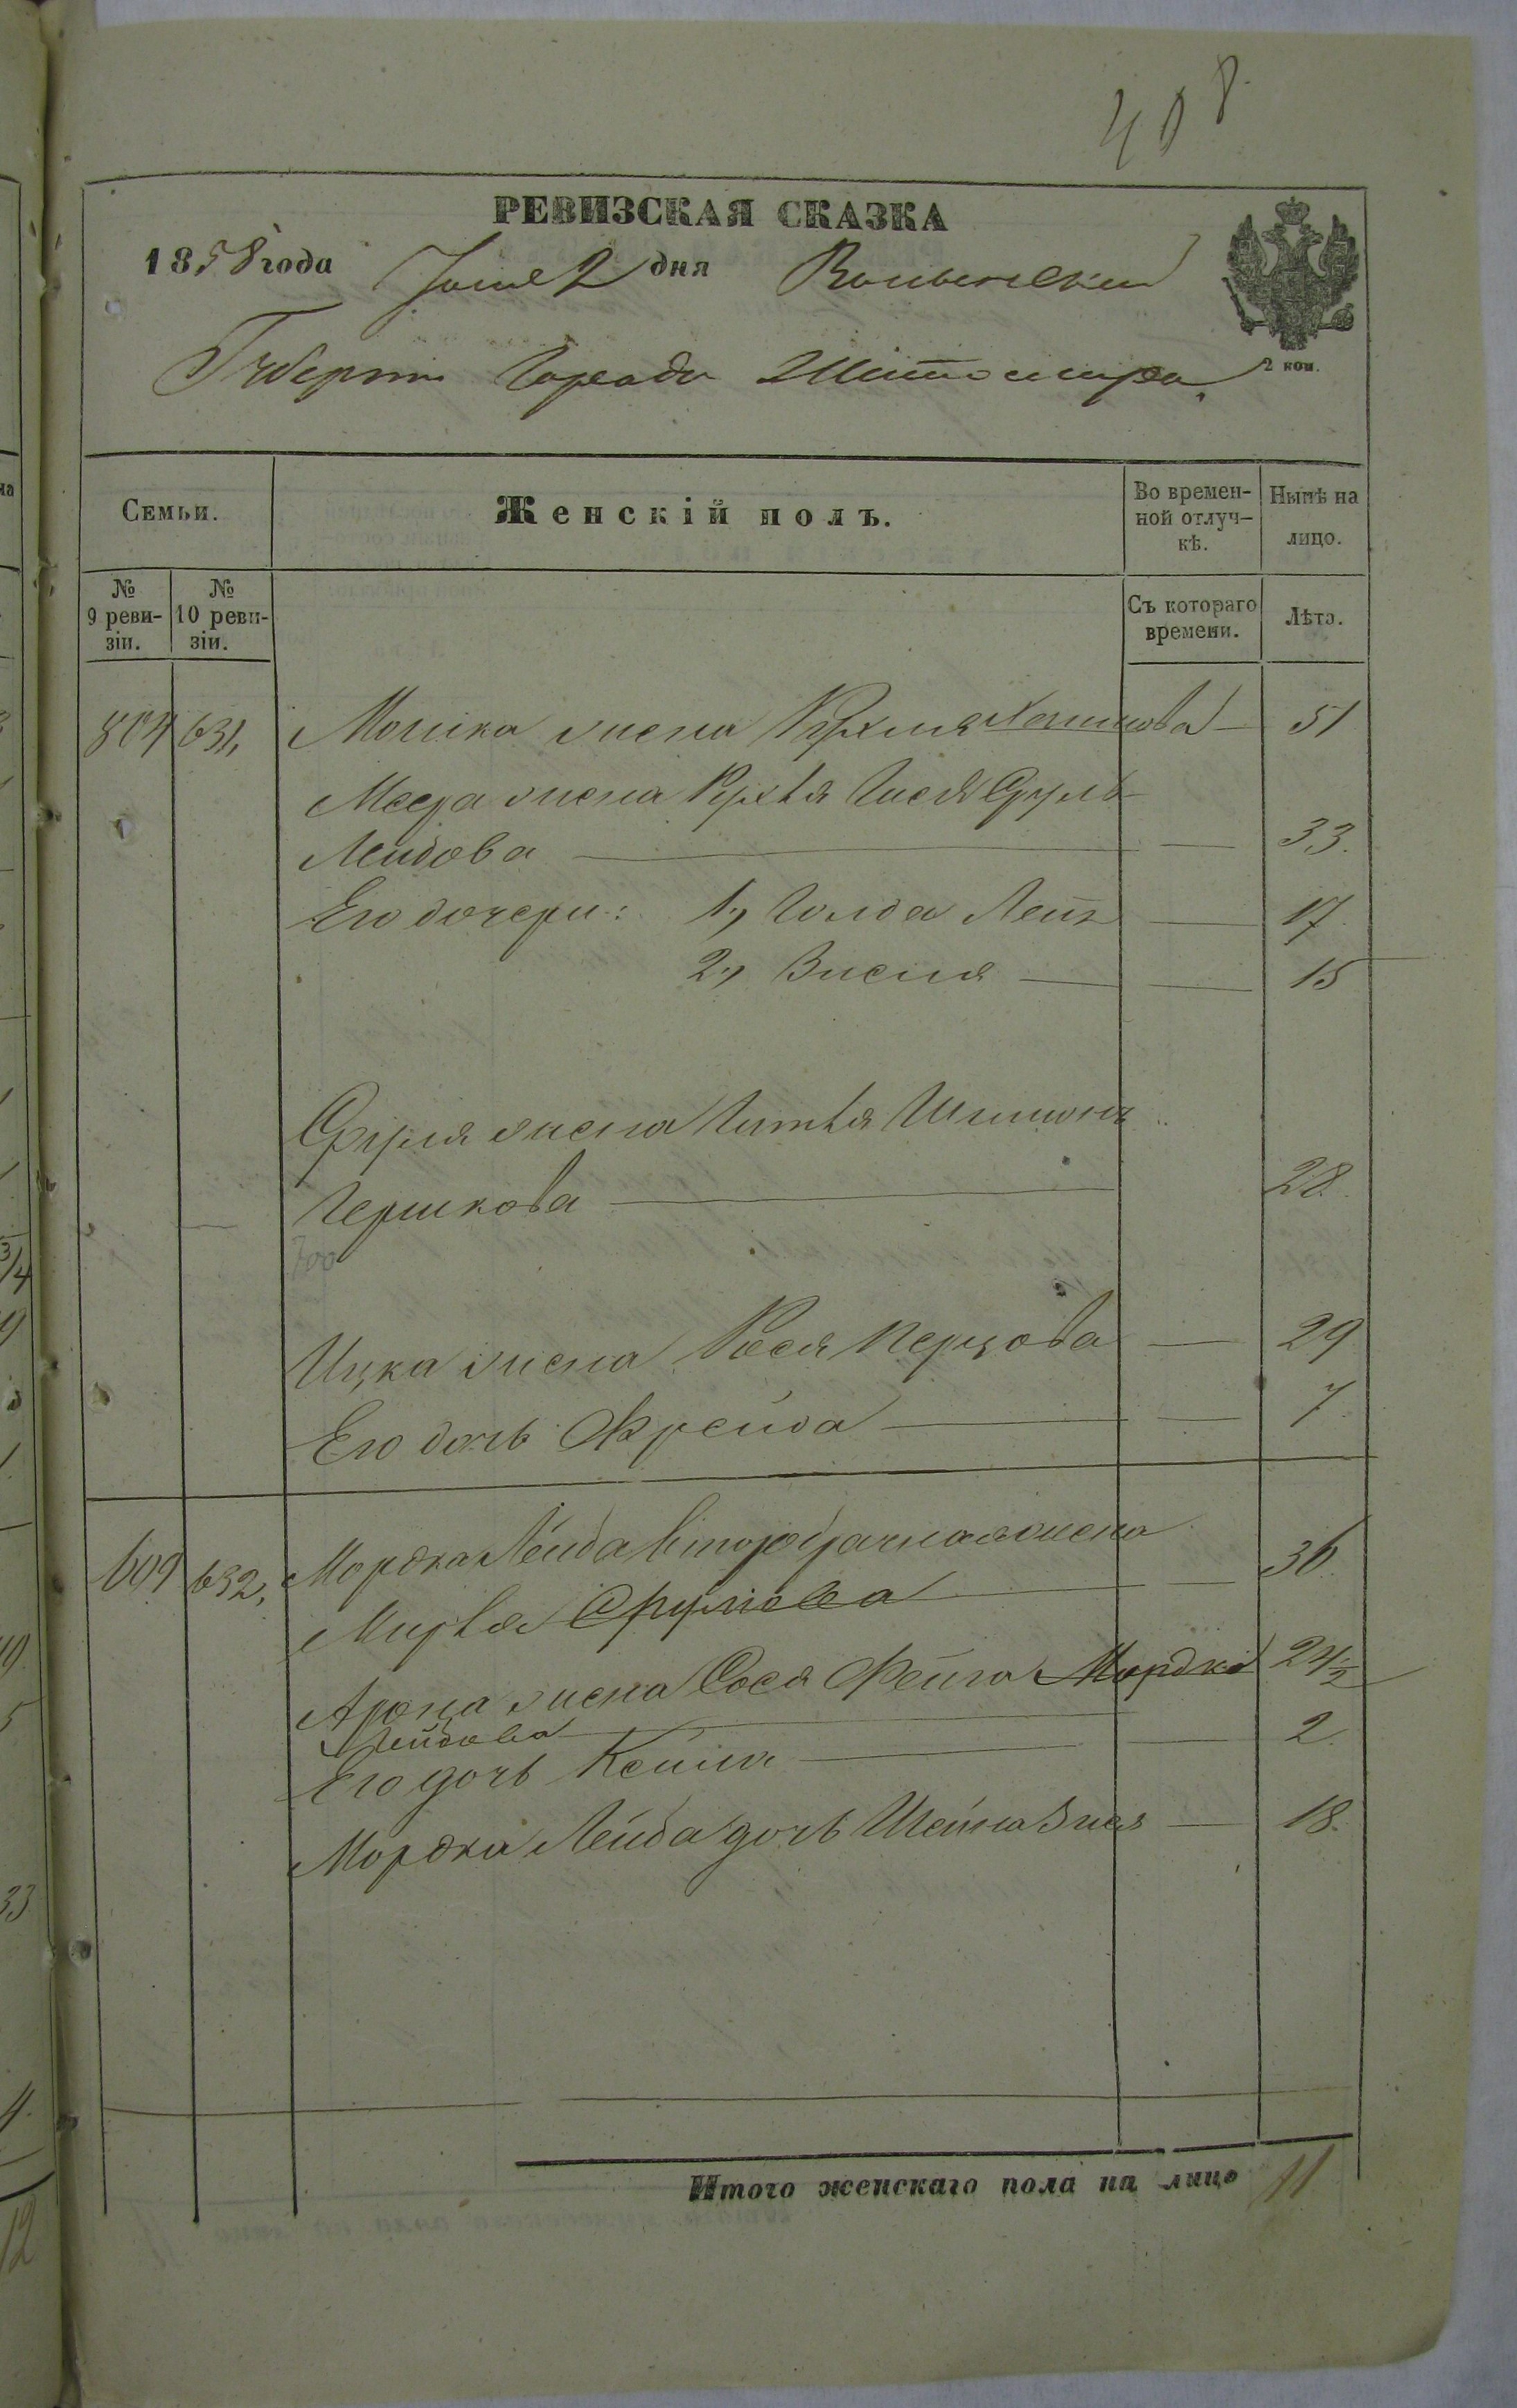 408
РЕВИЗСКАЯ СКАЗКА
1858 года Іюня 2 дня Волынской
Губерніи Города Житомира
2 коп.
Семьи.
Женскій полъ.
Во времен-
ной отлуч-
кѣ.
Нынѣ на
лицо.
№
9 реви-
зіи.
№
10 реви-
зіи.
Съ котораго
времени.
Лѣта.
631, Мошка жена Рухля 51
Меера жена Рухля Гися Сруль
Лейбова 33.
Его дочери: 1, Голда Лея 17.
2, Зисля 15
Сруля жена Гитля Шимонъ
Гершкова 28.
700
Ицка жена Рося Перцова 29
Его дочь Фрейда 7.
609 632, Мордка Лейба второбрачная жена
Мирля Срулева 36.
Арона жена Сося Фейга Мордко 24½
Лейбова
Его дочь Кейла 2.
Мордка Лейба дочь Шейна 18.
Итого женскаго пола на лицо 11